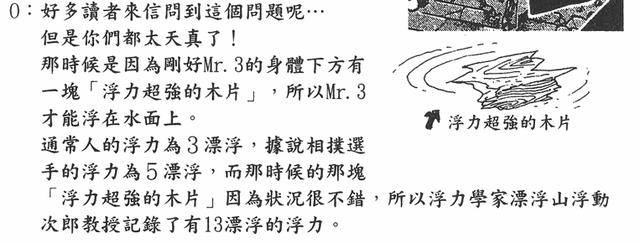 O：好多讀者來信問到這個問題呢…
但是你們都太天真了！
那時候是因為剛好Mr.3的身體下方有
一塊「浮力超強的木片」，所以Mr.3
才能浮在水面上。
浮力超強的木片
通常人的浮力為3漂浮，據說相撲選
手的浮力為5漂浮，而那時候的那塊
「浮力超強的木片」因為狀況很不錯，所以浮力學家漂浮山浮動
次郎教授記錄了有13漂浮的浮力。